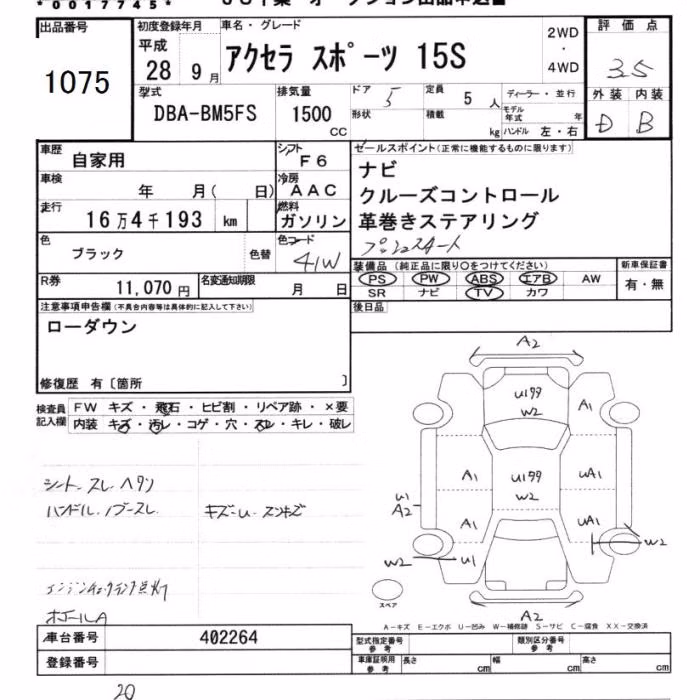 *0017745*
出品番号
1075
初度登録年月
平成
28 9月
車名・グレード
アクセラ スポーツ 15S
2WD
・
4WD
評価点
3.5
外装 内装
D B
型式
DBA-BM5FS
排気量
1500
CC
ドア
5
形状
定員
5人
積載
kg
ディーラー・並行
モデル年式 年
ハンドル 左・右
車歴
自家用
シフト
F6
車検
年 月( 日)
冷房
AAC
走行
16万4千193 km
燃料
ガソリン
色
ブラック
色替
色コード
41W
R券
11,070円
名変通知期限
月 日
セールスポイント(正常に機能するものに限ります)
ナビ
クルーズコントロール
革巻きステアリング
プッシュスタート
装備品(純正品に限り○をつけてください)
PS PW ABS エアB AW
SR ナビ TV カワ
新車保証書
有・無
後日品
注意事項申告欄(不具合内容等は具体的に記入して下さい)
ローダウン
修復歴 有〔箇所 〕
検査員記入欄
FW キズ・飛石・ヒビ割・リペア跡・×要
内装 キズ・汚レ・コゲ・穴・スレ・キレ・破レ
シート スレ ヘタリ
ハンドル ノブスレ
キズ・U・スンキズ
エンジンチェックランプ点灯
ホイールA
A2
U199
W2
A1
A1
U199
W2
UA1
U1
A2
A1
UA1
W2
U1
W2
スペア
A2
A-キズ E-エクボ U-凹み W-補修跡 S-サビ C-腐食 XX-交換済
車台番号
402264
登録番号
型式指定番号
参考
類別区分番号
参考
車庫証明用
参考
長さ cm
幅 cm
高さ cm
20